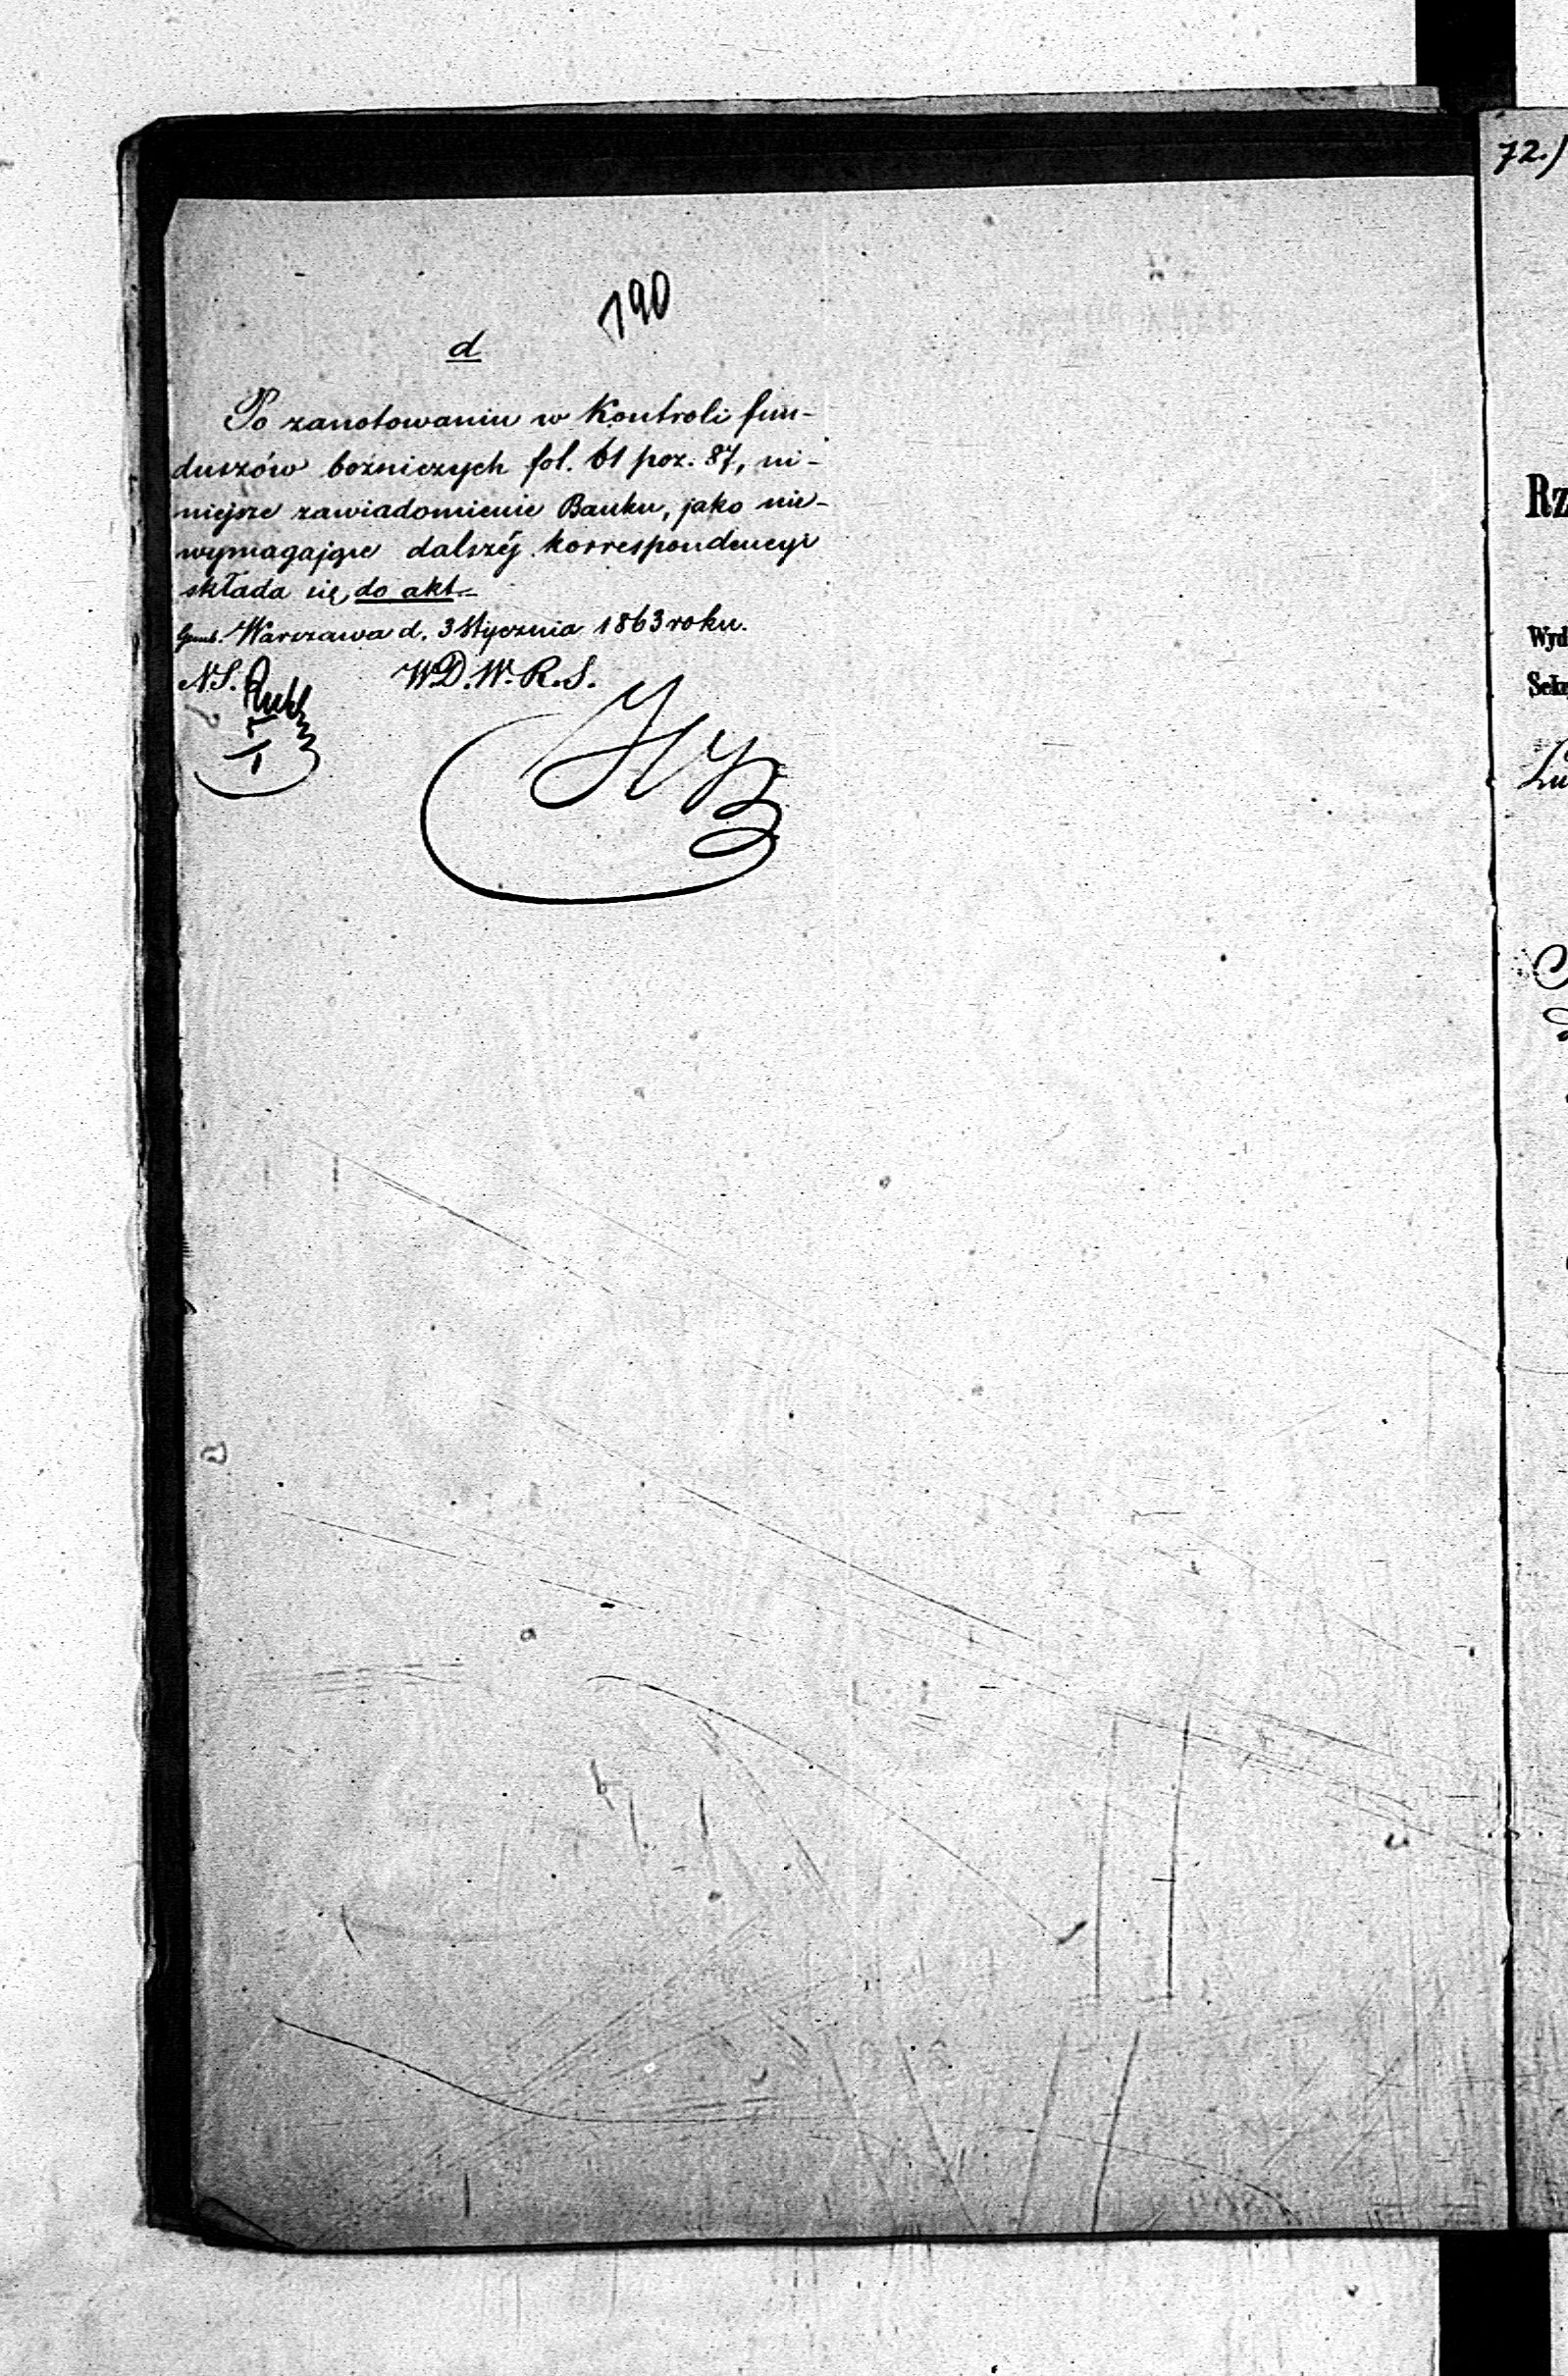 190
d
Po zanotowaniu w Kontroli fun-
duszów bożniczych fol. 61 poz. 87, ni-
niejsze zawiadomienie Banku, jako nie-
wymagające dalszéj korrespondencyi
składa się do akt
Warszawa d. 3 Stycznia 1863 roku.
N.S. W.D.W.R.S.
72.)
Rz
Wyd
Sek
Lu